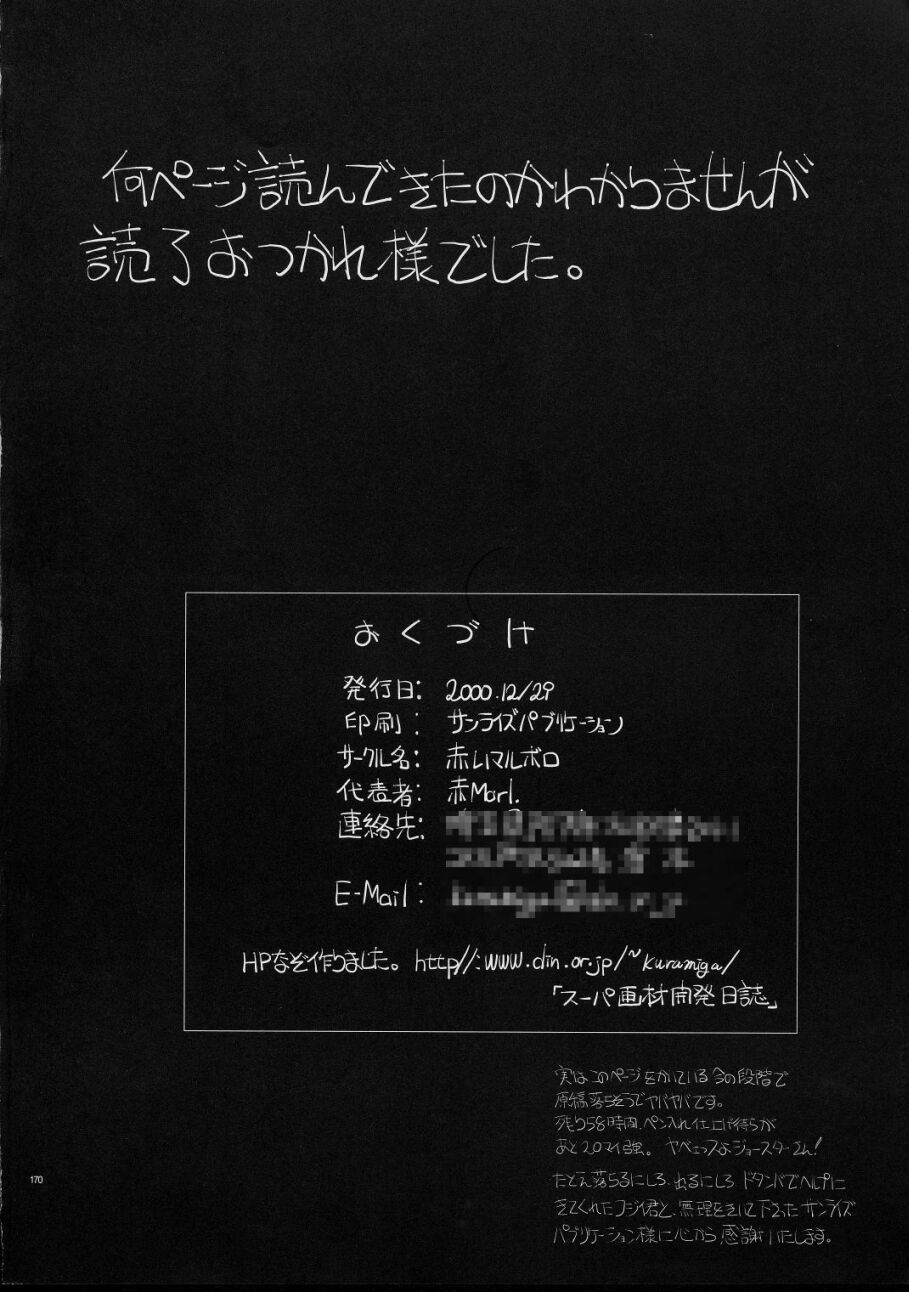 何ページ読んできたのかわかりませんが
読了おつかれ様でした。
おくづけ
発行日: 2000.12/29
印刷: サンライズパブリケーション
サークル名: 赤いマルボロ
代表者: 赤Marl.
連絡先:
E-Mail:
HPなぞ作りました。http//:www.din.or.jp/~kuramiga/
「スーパ画材開発日誌」
実はこのページをかいている今の段階で
原稿落ちそうでヤバヤバです。
残り58時間、ペン入れ仕上げ待ちが
あと20マイ強。 ヤベェっスよジョースターさん!
たとえ落ちるにしろ、出るにしろ ドタンバでヘルプに
きてくれたフジイ君と、無理をきいて下さったサンライズ
パブリケーション様に心から感謝いたします。
170